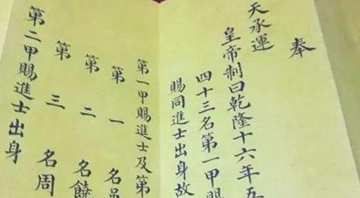 奉
天承運
皇帝制曰乾隆十六年五
四十三名第一甲賜
賜同進士出身故
第一甲賜進士及第
第一名吳
第二名饒
第三名周
第二甲賜進士出身